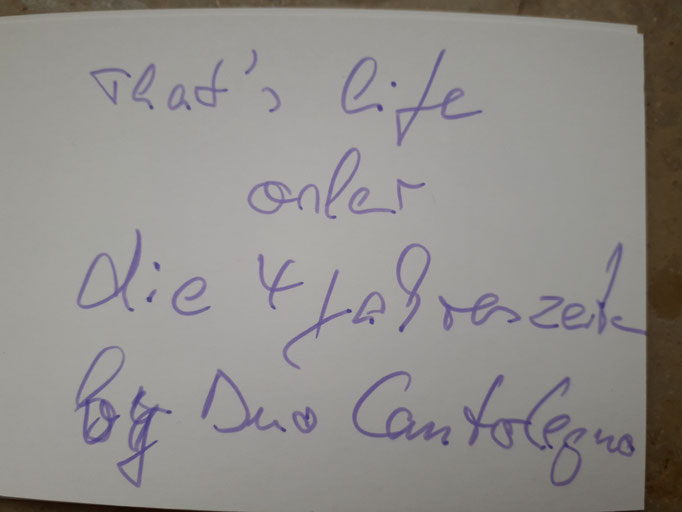 That's life
oder
die 4 Jahreszeiten
by Duo Cantolegno